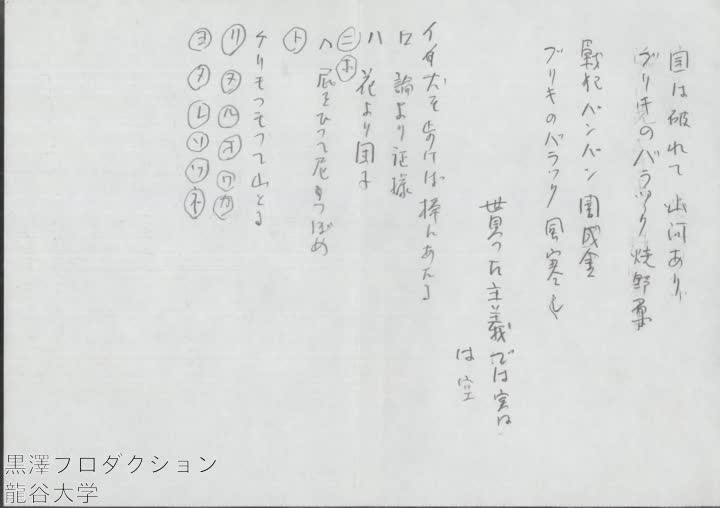 国は破れて山河あり、
ブリキのバラック焼野原
戦犯パンパン 闇成金
ブリキのバラック 風寒し
貰った主義では実は
は 空
イ 犬も歩けば棒にあたる
ロ 論より証拠
ハ 花より団子
ニ ホ
ヘ 屁をひって尻つぼめ
ト
チリもつもって山となる
リ ヌ ル オ ワ カ
ヨ タ レ ソ ツ ネ
黒澤プロダクション
龍谷大学